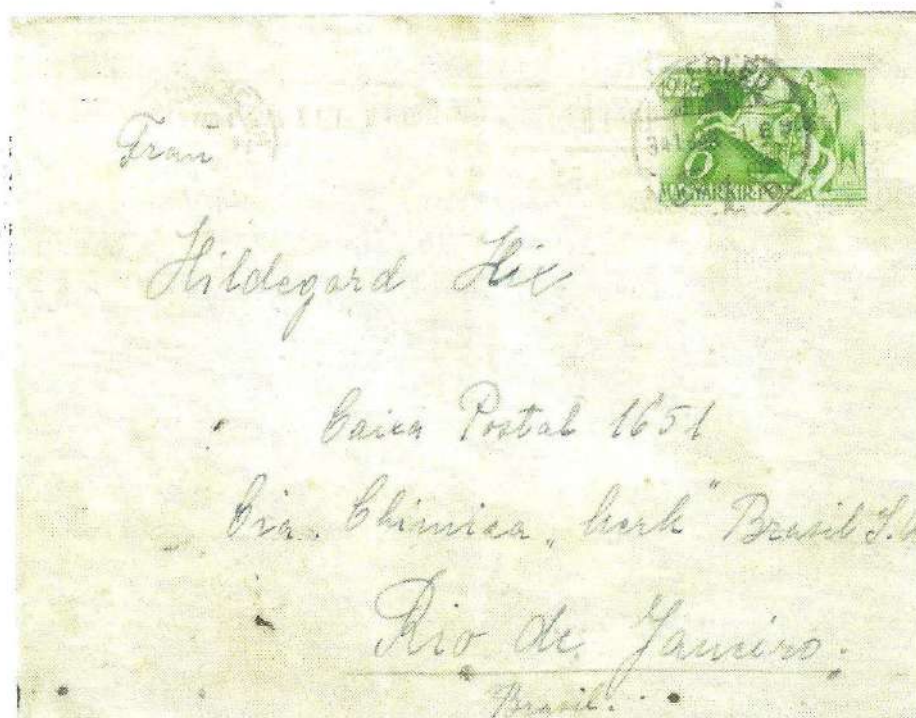 Frau
Hildegard Hix
Caixa Postal 1651
Cia. Chimica „Merk" Brasil S.
Rio de Janeiro.
Brasil.
6
MAGYAR KIR.